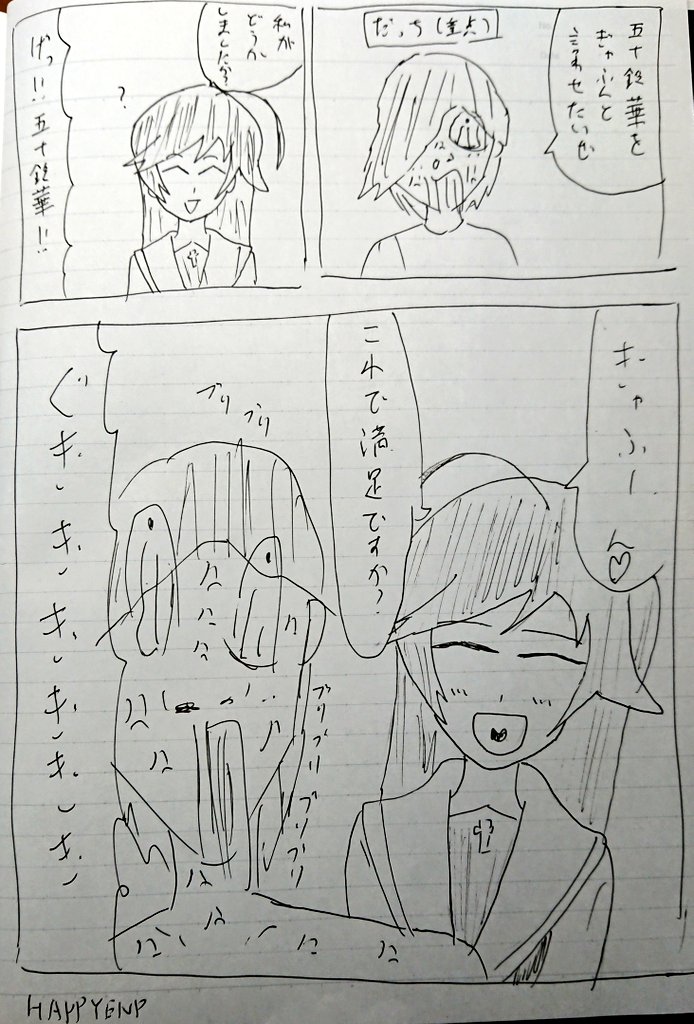 五十鈴華を
ぎゃふんと
言わせたいぜ
だっち(重点)
私が
どうか
しましたか?
?
げっ!!五十鈴華!!
ぎゃふーん♡
これで満足ですか?
ブリ
ブリ
ブリブリブリブリ
ぐぎぎぎぎぎぎ
HAPPYEND